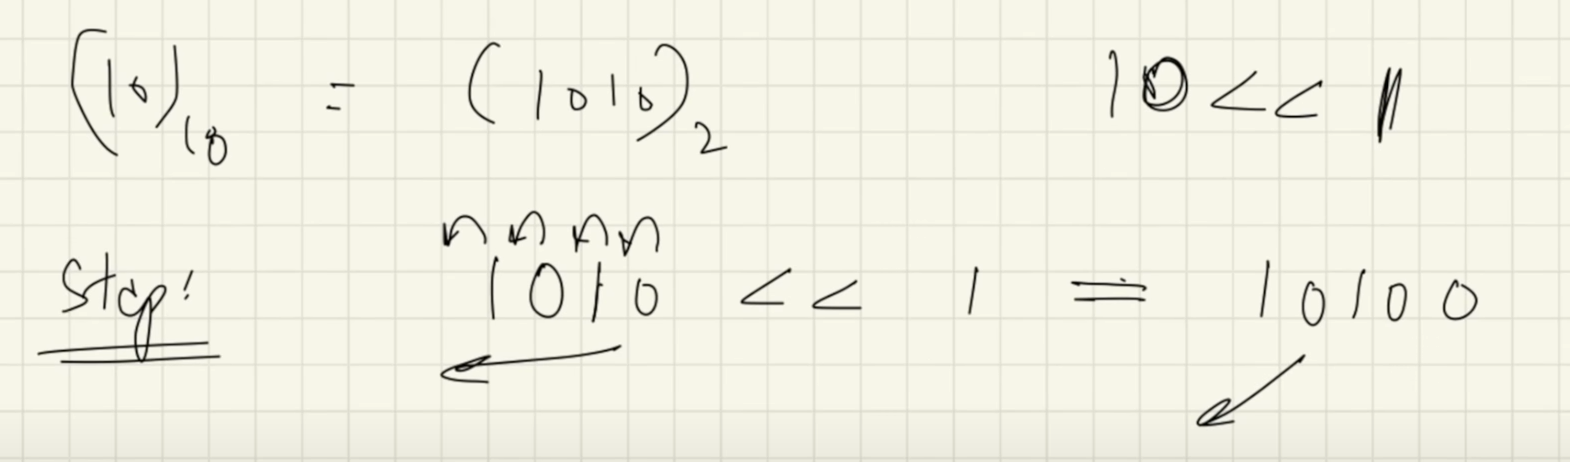 (10)10 = (1010)2 10 << 1
Step: 1010 << 1 = 10100